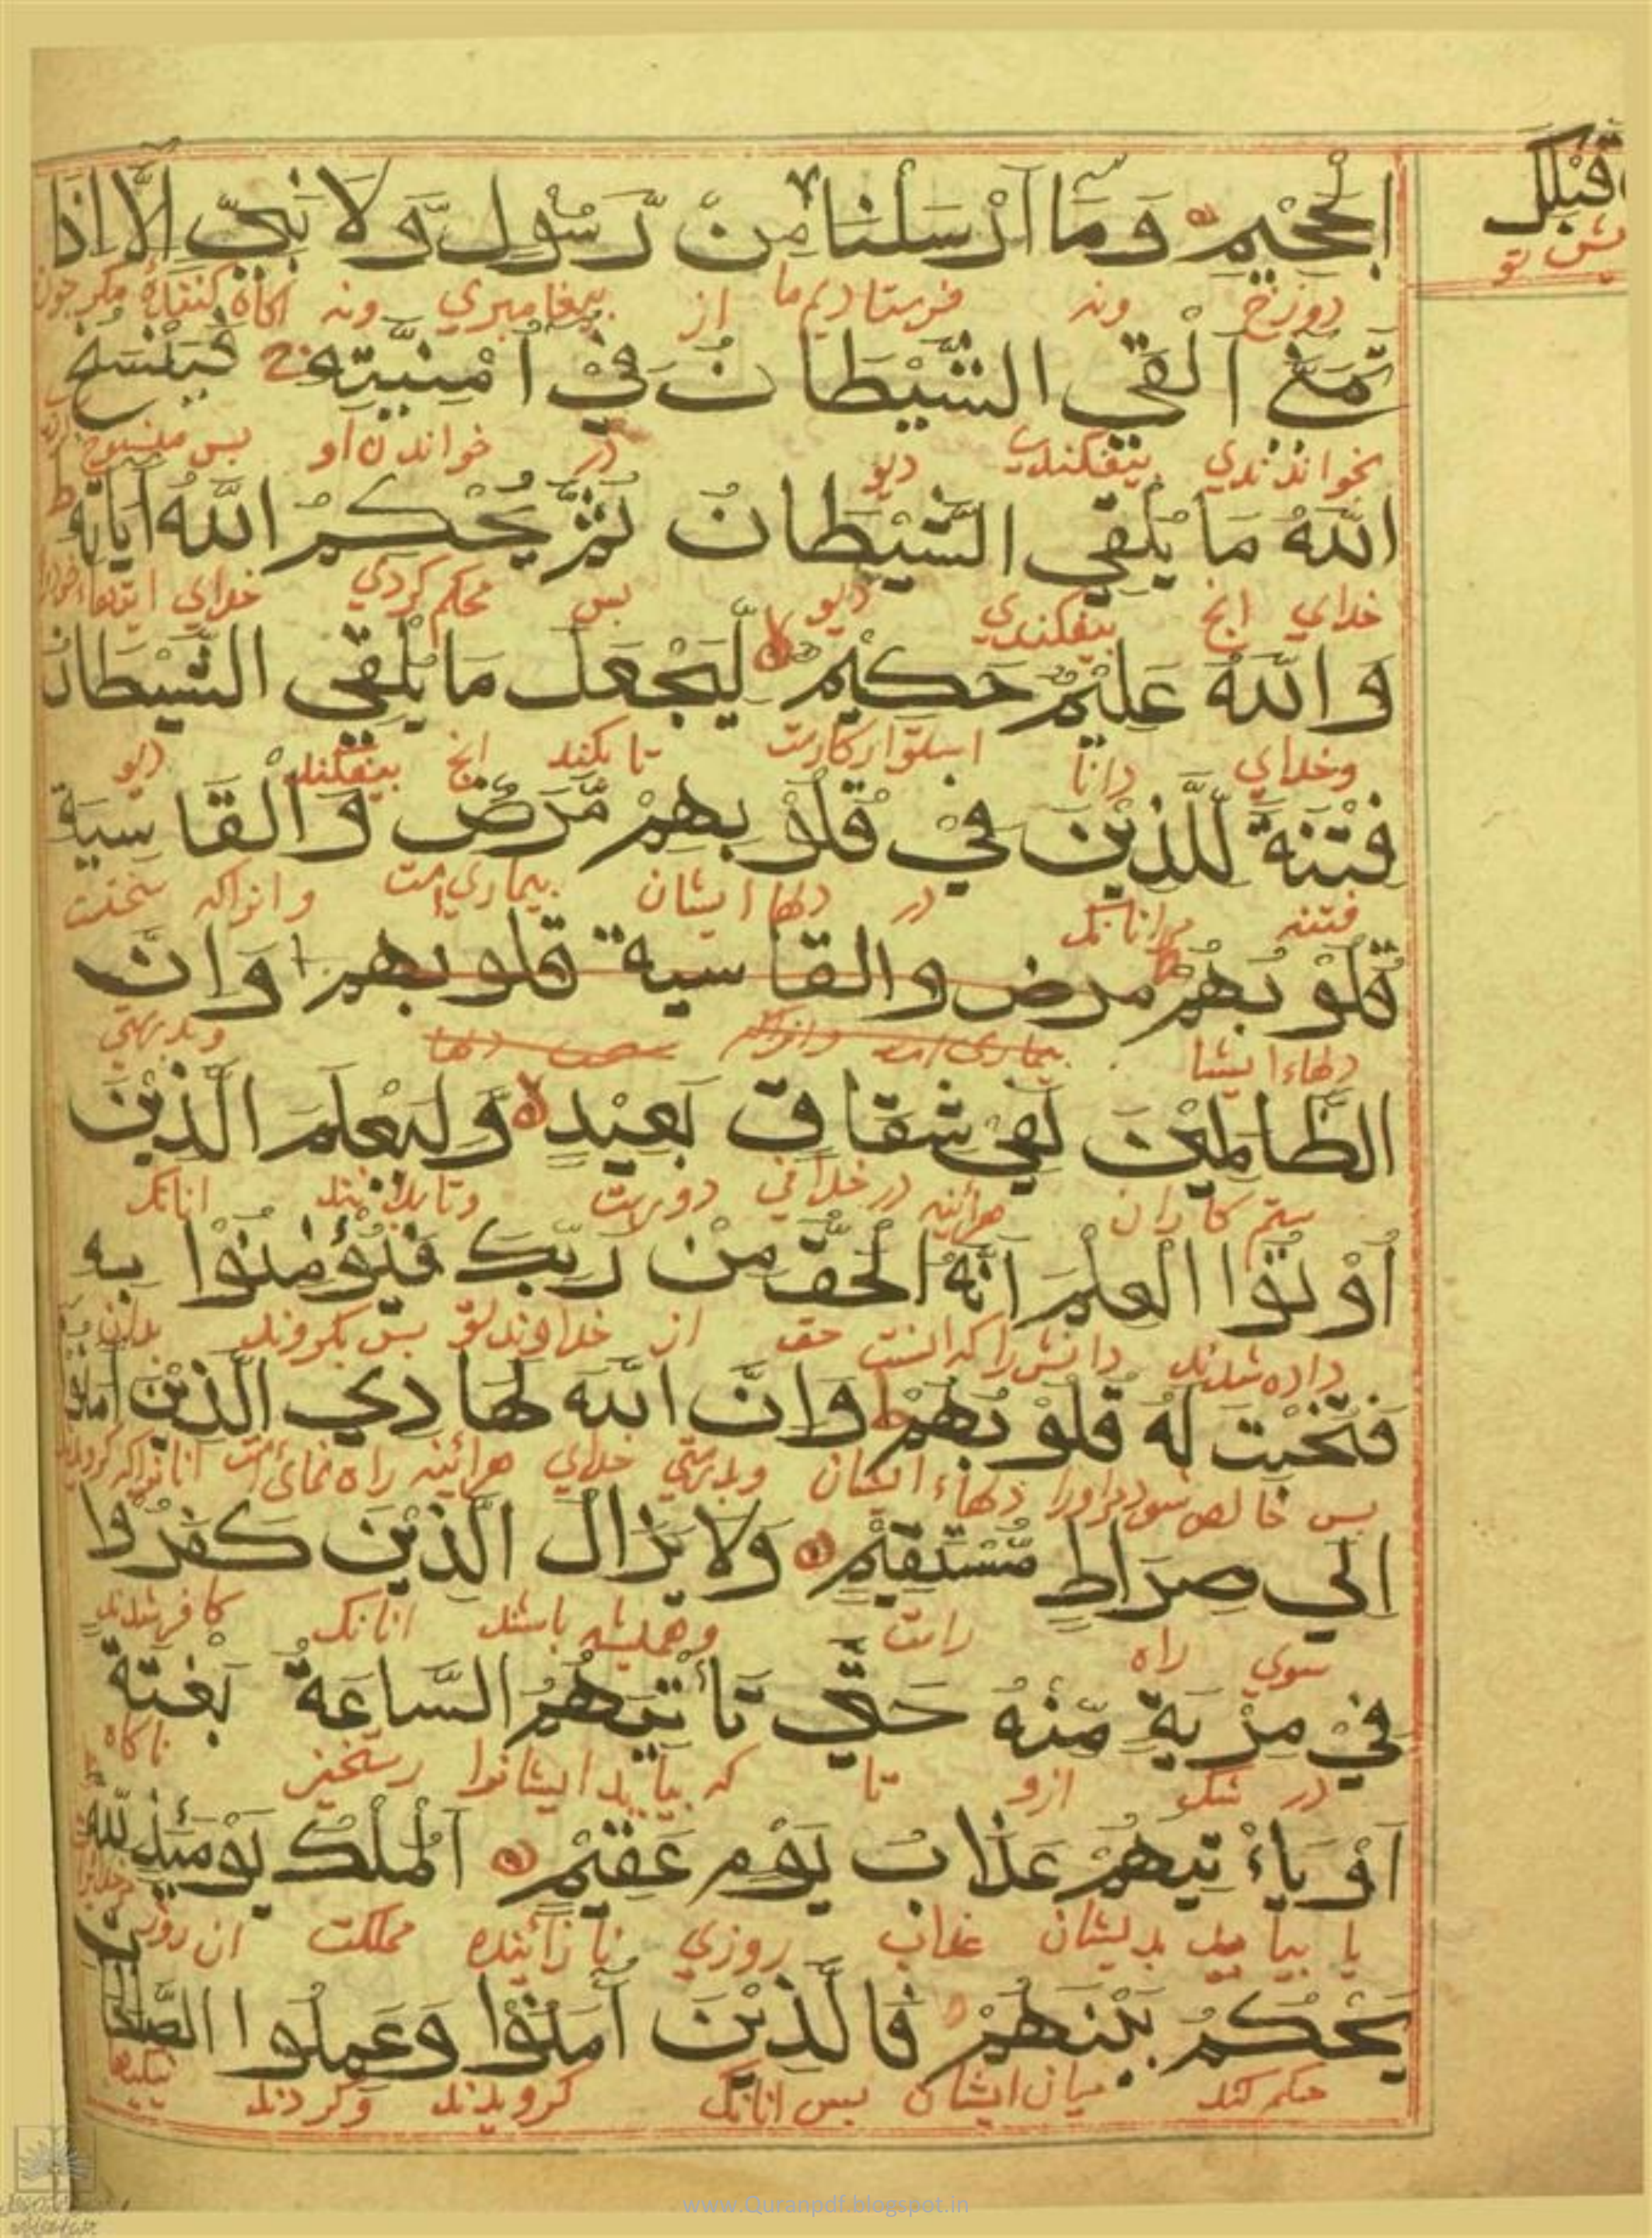 قَبْلِكَ
پیش تو
الْجَحِيْمِ وَمَا اَرْسَلْنَا مِنْ رَّسُوْلٍ وَّلَا نَبِيٍّ اِلَّا اِذَا
دوزخ ونه فرستادیم ما از پیغامبری ونه اکاه کننده مکر چون
تَمَنّٰي اَلْقَي الشَّيْطَانُ فِيْ اُمْنِيَّتِهٖ فَيَنْسَخُ
بخواندندی بیفکندی دیو در خواندن او بس منسوخ
اللّٰهُ مَا يُلْقِي الشَّيْطَانُ ثُمَّ يُحْكِمُ اللّٰهُ آيَاتِهٖ ط
خدای انج بیفکندی دیو بس محکم کردی خدای
وَاللّٰهُ عَلِيْمٌ حَكِيْمٌ لِّيَجْعَلَ مَا يُلْقِي الشَّيْطَانُ
وخدای دانا استوارکارست تا بکند انج بیفکند دیو
فِتْنَةً لِّلَّذِيْنَ فِيْ قُلُوْبِهِمْ مَّرَضٌ وَّالْقَاسِيَةِ
فتنه مرانانک در دلها ایشان بیماری است وانراکه سختست
قُلُوْبُهُمْ مرض والقاسية قلوبهم وَاِنَّ
دلهاء ایشا بیماری است وانراکه سخت دلها وبدرستی
الظَّالِمِيْنَ لَفِيْ شِقَاقٍ بَعِيْدٍ وَّلِيَعْلَمَ الَّذِيْنَ
ستم کاران هرآئینه در خلافی دورست وتا بدانند انانک
اُوْتُوا الْعِلْمَ اَنَّهُ الْحَقُّ مِنْ رَّبِّكَ فَيُؤْمِنُوْا بِهٖ
داده شدند دانش را که انست حق از خداوند تو بس بکروند بدان
فَتُخْبِتَ لَهٗ قُلُوْبُهُمْ ط وَاِنَّ اللّٰهَ لَهَادِي الَّذِيْنَ آمَنُوْا
بس خالص شود مراورا دلهاء ایشان وبدرستی خدای هرآئینه راه نمای است انانراکه کرویدند
اِلٰي صِرَاطٍ مُّسْتَقِيْمٍ وَلَا يَزَالُ الَّذِيْنَ كَفَرُوْا
سوی راه راست وهمیشه باشند انانک کافر شدند
فِيْ مِرْيَةٍ مِّنْهُ حَتّٰي تَأْتِيَهُمُ السَّاعَةُ بَغْتَةً
در شک ازو تا که بیاید ایشانرا رستخیز ناکاه
اَوْ يَاْتِيَهُمْ عَذَابُ يَوْمٍ عَقِيْمٍ اَلْمُلْكُ يَوْمَئِذٍ لِّلّٰهِ
یا بیاید بدیشان عذاب روزی نازاینده مملکت ان روز
يَحْكُمُ بَيْنَهُمْ فَالَّذِيْنَ آمَنُوْا وَعَمِلُوا الصَّالِحَاتِ
حکم کند میان ایشان بس انانک کرویدند وکردند نیکیها
www.Quranpdf.blogspot.in